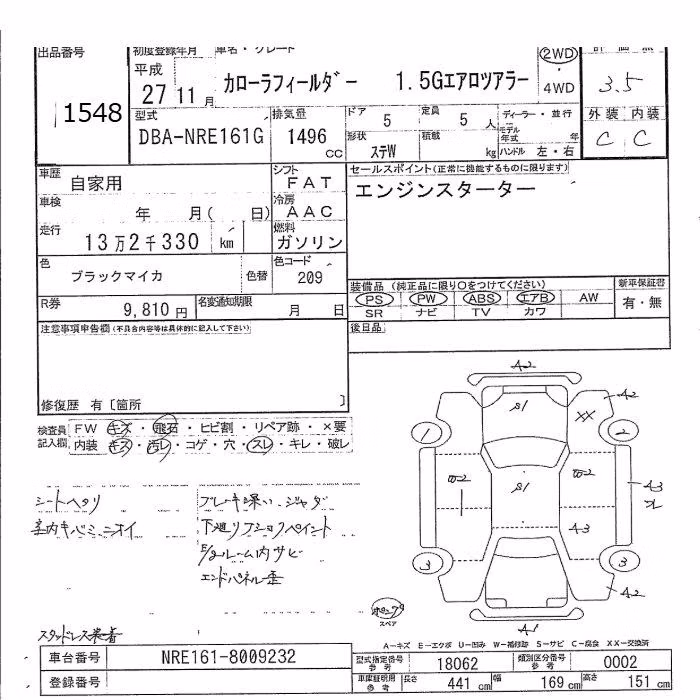 出品番号 1548
初度登録年月 平成 27 11 月
車名・グレード カローラフィールダー 1.5Gエアロツアラー
2WD 4WD
評価点 3.5
型式 DBA-NRE161G
排気量 1496 CC
ドア 5 定員 5 人
形状 ステW 積載 kg
ディーラー・並行
モデル年式 年
ハンドル 左・右
外装 内装
C C
車歴 自家用
シフト FAT
車検 年 月( 日)
冷房 AAC
走行 13万2千330 km
燃料 ガソリン
色 ブラックマイカ 色替
色コード 209
R券 9,810円
名変通知期限 月 日
セールスポイント(正常に機能するものに限ります)
エンジンスターター
装備品 (純正品に限り○をつけてください)
PS PW ABS エアB AW
SR ナビ TV カワ
新車保証書 有・無
後日品
注意事項申告欄(不具合内容等は具体的に記入して下さい)
修復歴 有〔箇所 〕
検査員記入欄
FW キズ・飛石・ヒビ割・リペア跡・×要
内装 キズ・汚レ・コゲ・穴・スレ・キレ・破レ
シートヘタリ
室内キバミ、ニオイ
下廻リフショクペイント
E/gルーム内サビ
エンドパネル歪
スタッドレス装着
A2
A2
S1
XX
1
2
W-2
S1
W-2
A-3
A-3
3
3
A-2
A-1
スペア
A-キズ E-エクボ U-凹み W-補修跡 S-サビ C-腐食 XX-交換済
車台番号 NRE161-8009232
登録番号
型式指定番号 参考 18062
類別区分番号 参考 0002
車庫証明用 参考 長さ 441 cm 幅 169 cm 高さ 151 cm